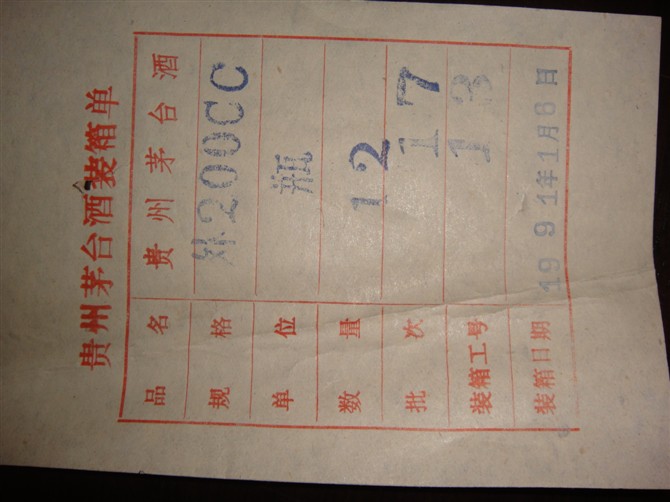 贵州茅台酒装箱单
品名 贵州茅台酒
规格 外200CC
单位 瓶
数量 12
批次 117
装箱工号 13
装箱日期 1991年1月6日